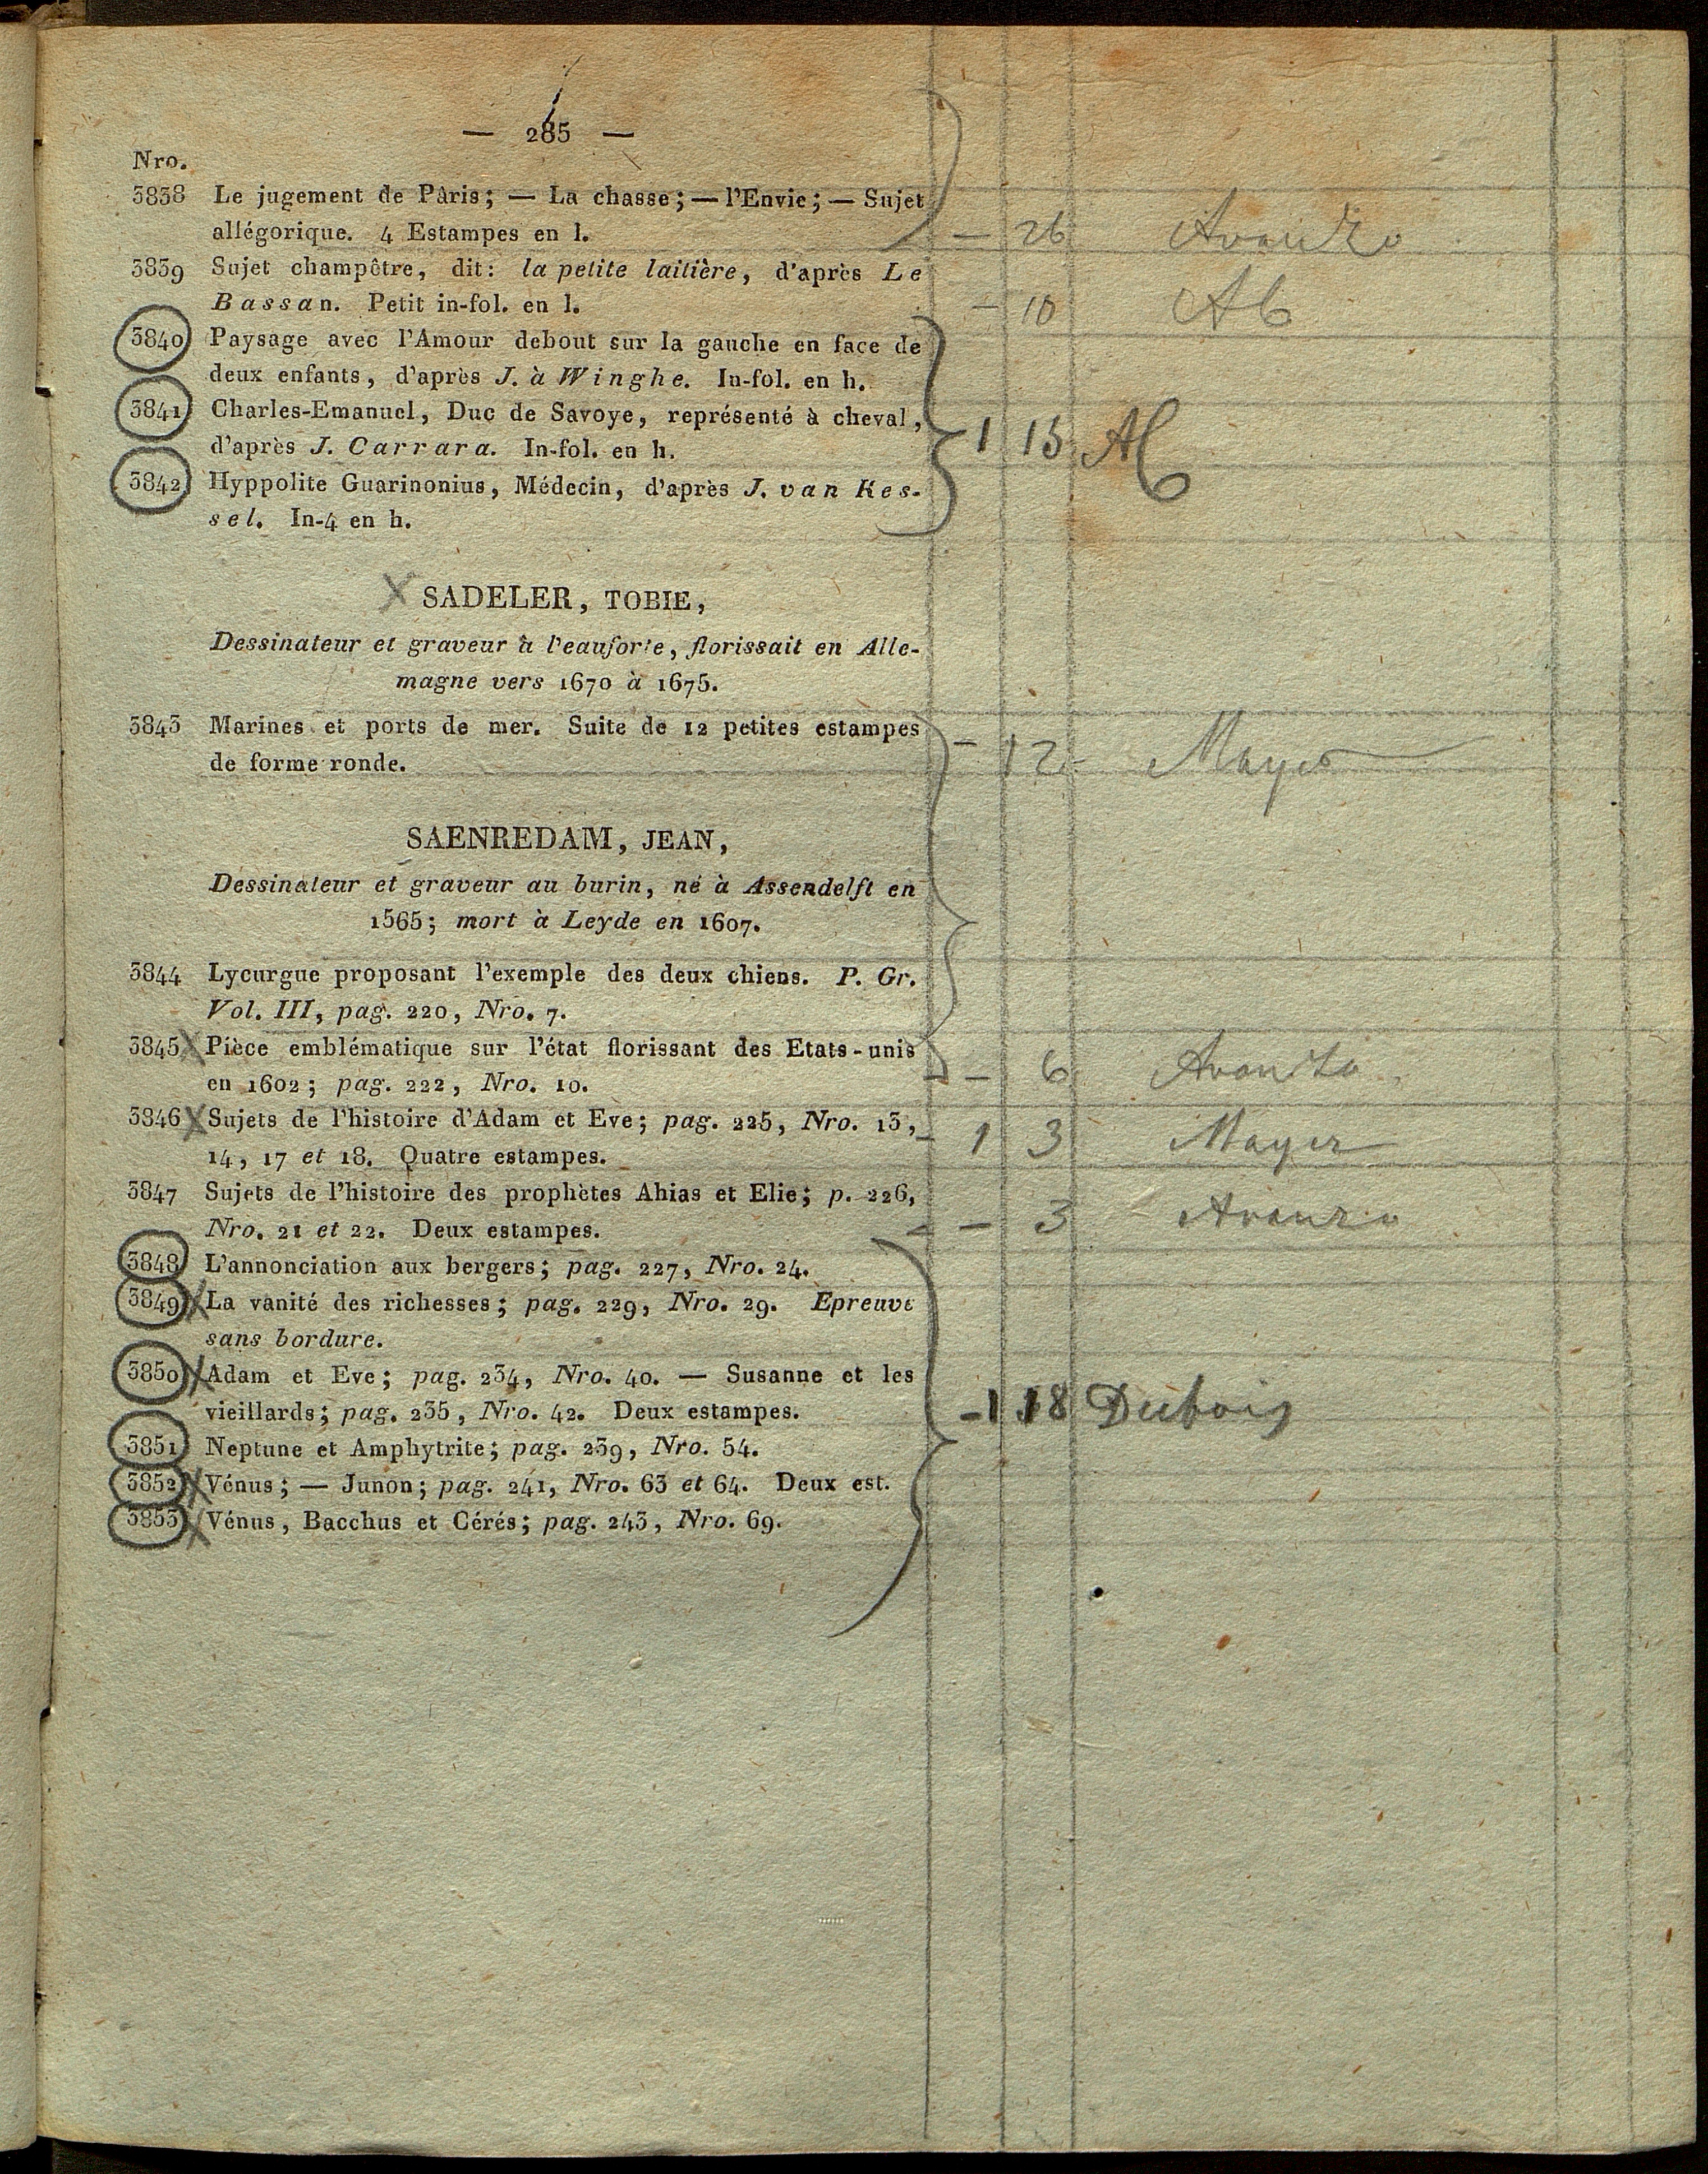 — 285 —
Nro.
3838 Le jugement de Pâris; — La chasse; — l'Envie; — Sujet
allégorique. 4 Estampes en l. — 26 Avanzo
3839 Sujet champêtre, dit: la petite laitière, d'après Le
Bassan. Petit in-fol. en l. — 10 Ab
3840 Paysage avec l'Amour debout sur la gauche en face de
deux enfants, d'après J. à Winghe. In-fol. en h.
3841 Charles-Emanuel, Duc de Savoye, représenté à cheval,
d'après J. Carrara. In-fol. en h. 1 15 Ab
3842 Hyppolite Guarinonius, Médecin, d'après J. van Kes-
sel. In-4 en h.
X SADELER, TOBIE,
Dessinateur et graveur à l'eauforte, florissait en Alle-
magne vers 1670 à 1675.
3843 Marines et ports de mer. Suite de 12 petites estampes
de forme ronde. — 12 Mayer
SAENREDAM, JEAN,
Dessinateur et graveur au burin, né à Assendelft en
1565; mort à Leyde en 1607.
3844 Lycurgue proposant l'exemple des deux chiens. P. Gr.
Vol. III, pag. 220, Nro. 7.
3845 X Pièce emblématique sur l'état florissant des Etats-unis
en 1602; pag. 222, Nro. 10. — 6 Avanzo
3846 X Sujets de l'histoire d'Adam et Eve; pag. 225, Nro. 13,
14, 17 et 18. Quatre estampes. 1 3 Mayer
3847 Sujets de l'histoire des prophètes Ahias et Elie; p. 226,
Nro. 21 et 22. Deux estampes. — 3 Avanzo
3848 L'annonciation aux bergers; pag. 227, Nro. 24.
3849 X La vanité des richesses; pag. 229, Nro. 29. Epreuve
sans bordure.
3850 X Adam et Eve; pag. 234, Nro. 40. — Susanne et les
vieillards; pag. 235, Nro. 42. Deux estampes. 1 18 Dubois
3851 Neptune et Amphytrite; pag. 239, Nro. 54.
3852 X Vénus; — Junon; pag. 241, Nro. 63 et 64. Deux est.
3853 X Vénus, Bacchus et Cérés; pag. 243, Nro. 69.